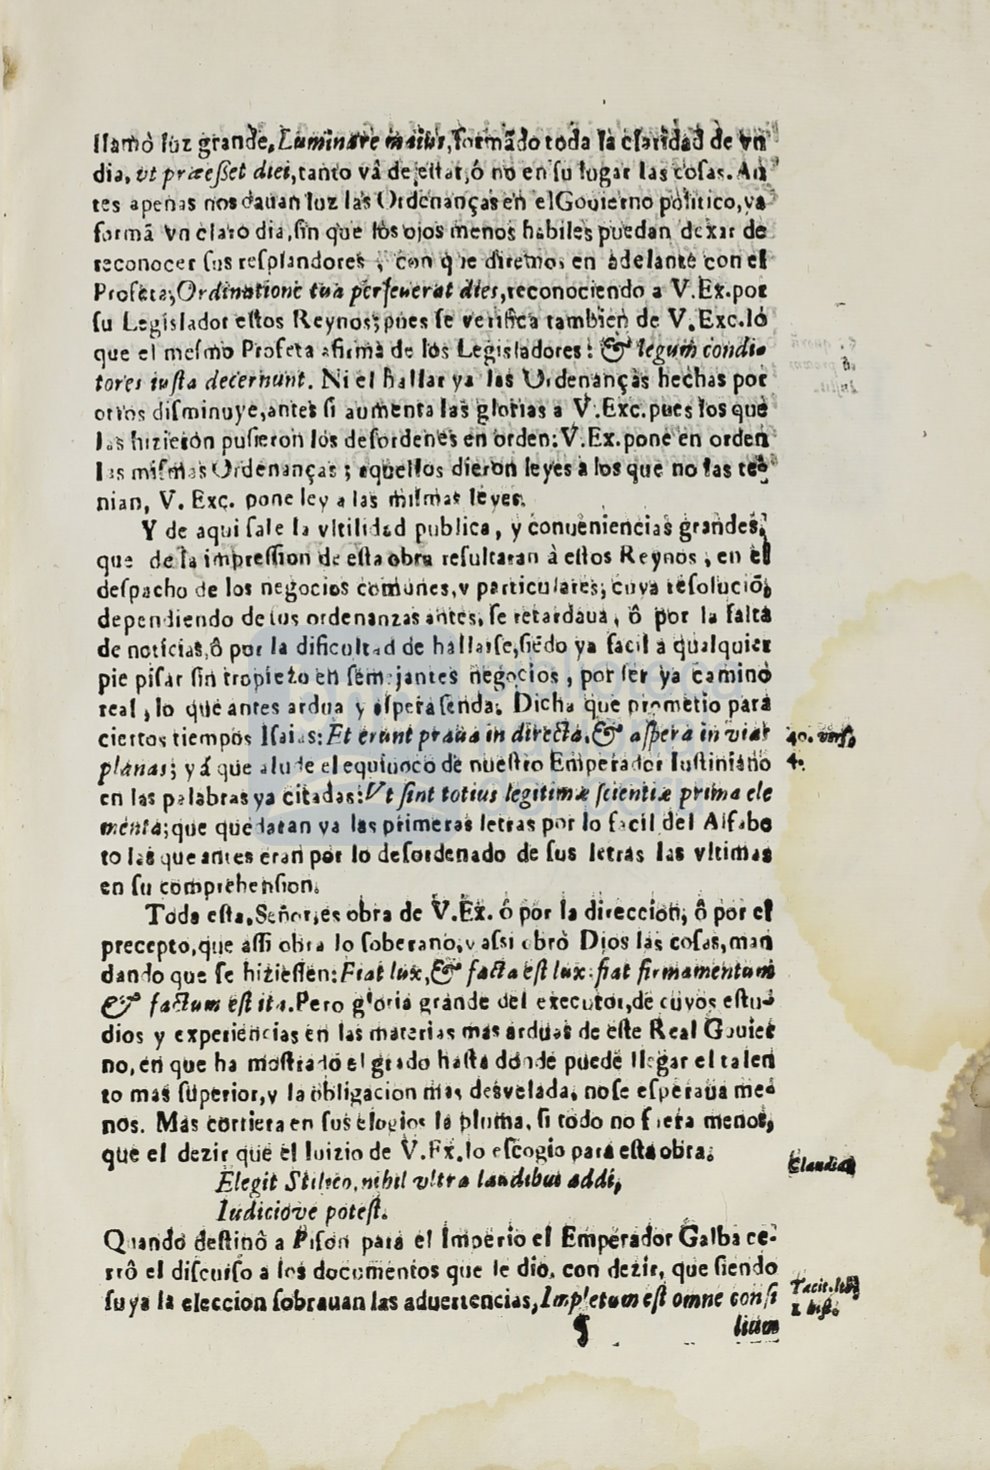 llamò luz grande, Luminare maius, formãdo toda la claridad de vn
dia, vt præeßet diei, tanto vâ de estar, ô no en su lugar las cosas. An
tes apenas nos dauan luz las Ordenanças en el Gouierno politico, ya
formã vn claro dia, sin que los ojos menos habiles puedan dexar de
reconocer sus resplandores, con que diremos en adelante con el
Profeta, Ordinatione tua perseuerat dies, reconociendo a V. Ex. por
su Legislador estos Reynos; pues se verifica tambien de V. Exc. lo
que el mesmo Profeta afirma de los Legisladores: & legum condi-
tores iusta decernunt. Ni el hallar ya las Ordenanças hechas por
otros disminuye, antes si aumenta las glorias a V. Exc. pues los que
las hizieron pusieron los desordenes en orden: V. Ex. pone en orden
las mismas Ordenanças; aquellos dieron leyes a los que no las te-
nian, V. Exc. pone ley a las mismas leyes.
Y de aqui sale la vtilidad publica, y conueniencias grandes,
que de la impression de esta obra resultaran à estos Reynos, en el
despacho de los negocios comunes, y particulares; cuya resoluciõ,
dependiendo de sus ordenanzas antes, se retardaua, ô por la falta
de noticias, ô por la dificultad de hallarse, siẽdo ya facil a qualquier
pie pisar sin tropiezo en semejantes negocios, por ser ya camino
real, lo que antes ardua y aspera senda. Dicha que prometio para
ciertos tiempos Isaias: Et erunt praua in directa, & aspera in vias
planas; y á que alude el equiuoco de nuestro Emperador Iustiniano
40. vers.
4.
en las palabras ya citadas: Vt sint totius legitimæ scientiæ prima ele
menta; que quedaran ya las primeras letras por lo facil del Alfabe
to las que antes eran por lo desordenado de sus letras las vltimas
en su comprehension.
Toda esta, Señor, es obra de V. Ex. ô por la direccion, ô por el
precepto, que assi obra lo soberano, y assi obrò Dios las cosas, man
dando que se hiziessen: Fiat lux, & facta est lux: fiat firmamentum
& factum est ita. Pero gloria grande del executor, de cuyos estu-
dios y experiencias en las materias mas arduas de este Real Gouier
no, en que ha mostrado el grado hasta donde puede llegar el talen
to mas superior, y la obligacion mas desvelada, no se esperaua me-
nos. Mas corriera en sus elogios la pluma, si todo no fuera menos,
que el dezir que el Iuizio de V. Ex. lo escogio para esta obra.
Claudia
Elegit Stilico, nihil vltra laudibus addi,
Iudiciove potest.
Quando destinô a Pison para el Imperio el Emperador Galba ce-
rrô el discurso a los documentos que le dio, con dezir, que siendo
suya la eleccion sobrauan las aduertencias, Impletum est omne consi
Tacit. lib.
1. hist.
¶ lium